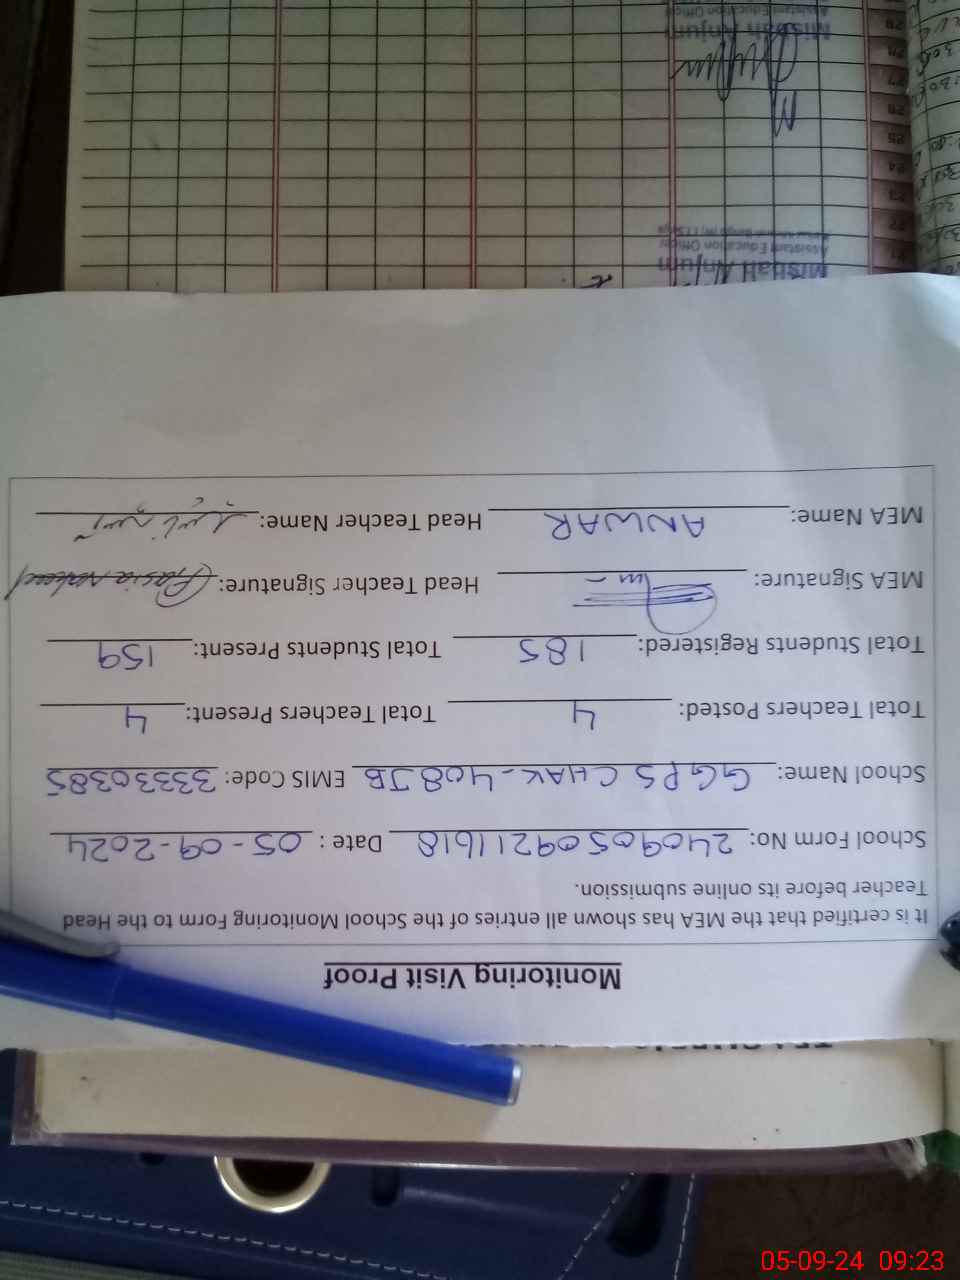 Monitoring Visit Proof
It is certified that the MEA has shown all entries of the School Monitoring Form to the Head
Teacher before its online submission.
School Form No: 24090509211618 Date : 05-09-2024
School Name: GGPS CHAK-408JB EMIS Code: 33330385
Total Teachers Posted: 4 Total Teachers Present: 4
Total Students Registered: 185 Total Students Present: 159
MEA Signature: Head Teacher Signature:
MEA Name: ANWAR Head Teacher Name:
Misbah Anjum
Assistant Education Officer
Misbah Anjum
Assistant Education Officer
22
23
24
25
26
27
28
29
05-09-24 09:23